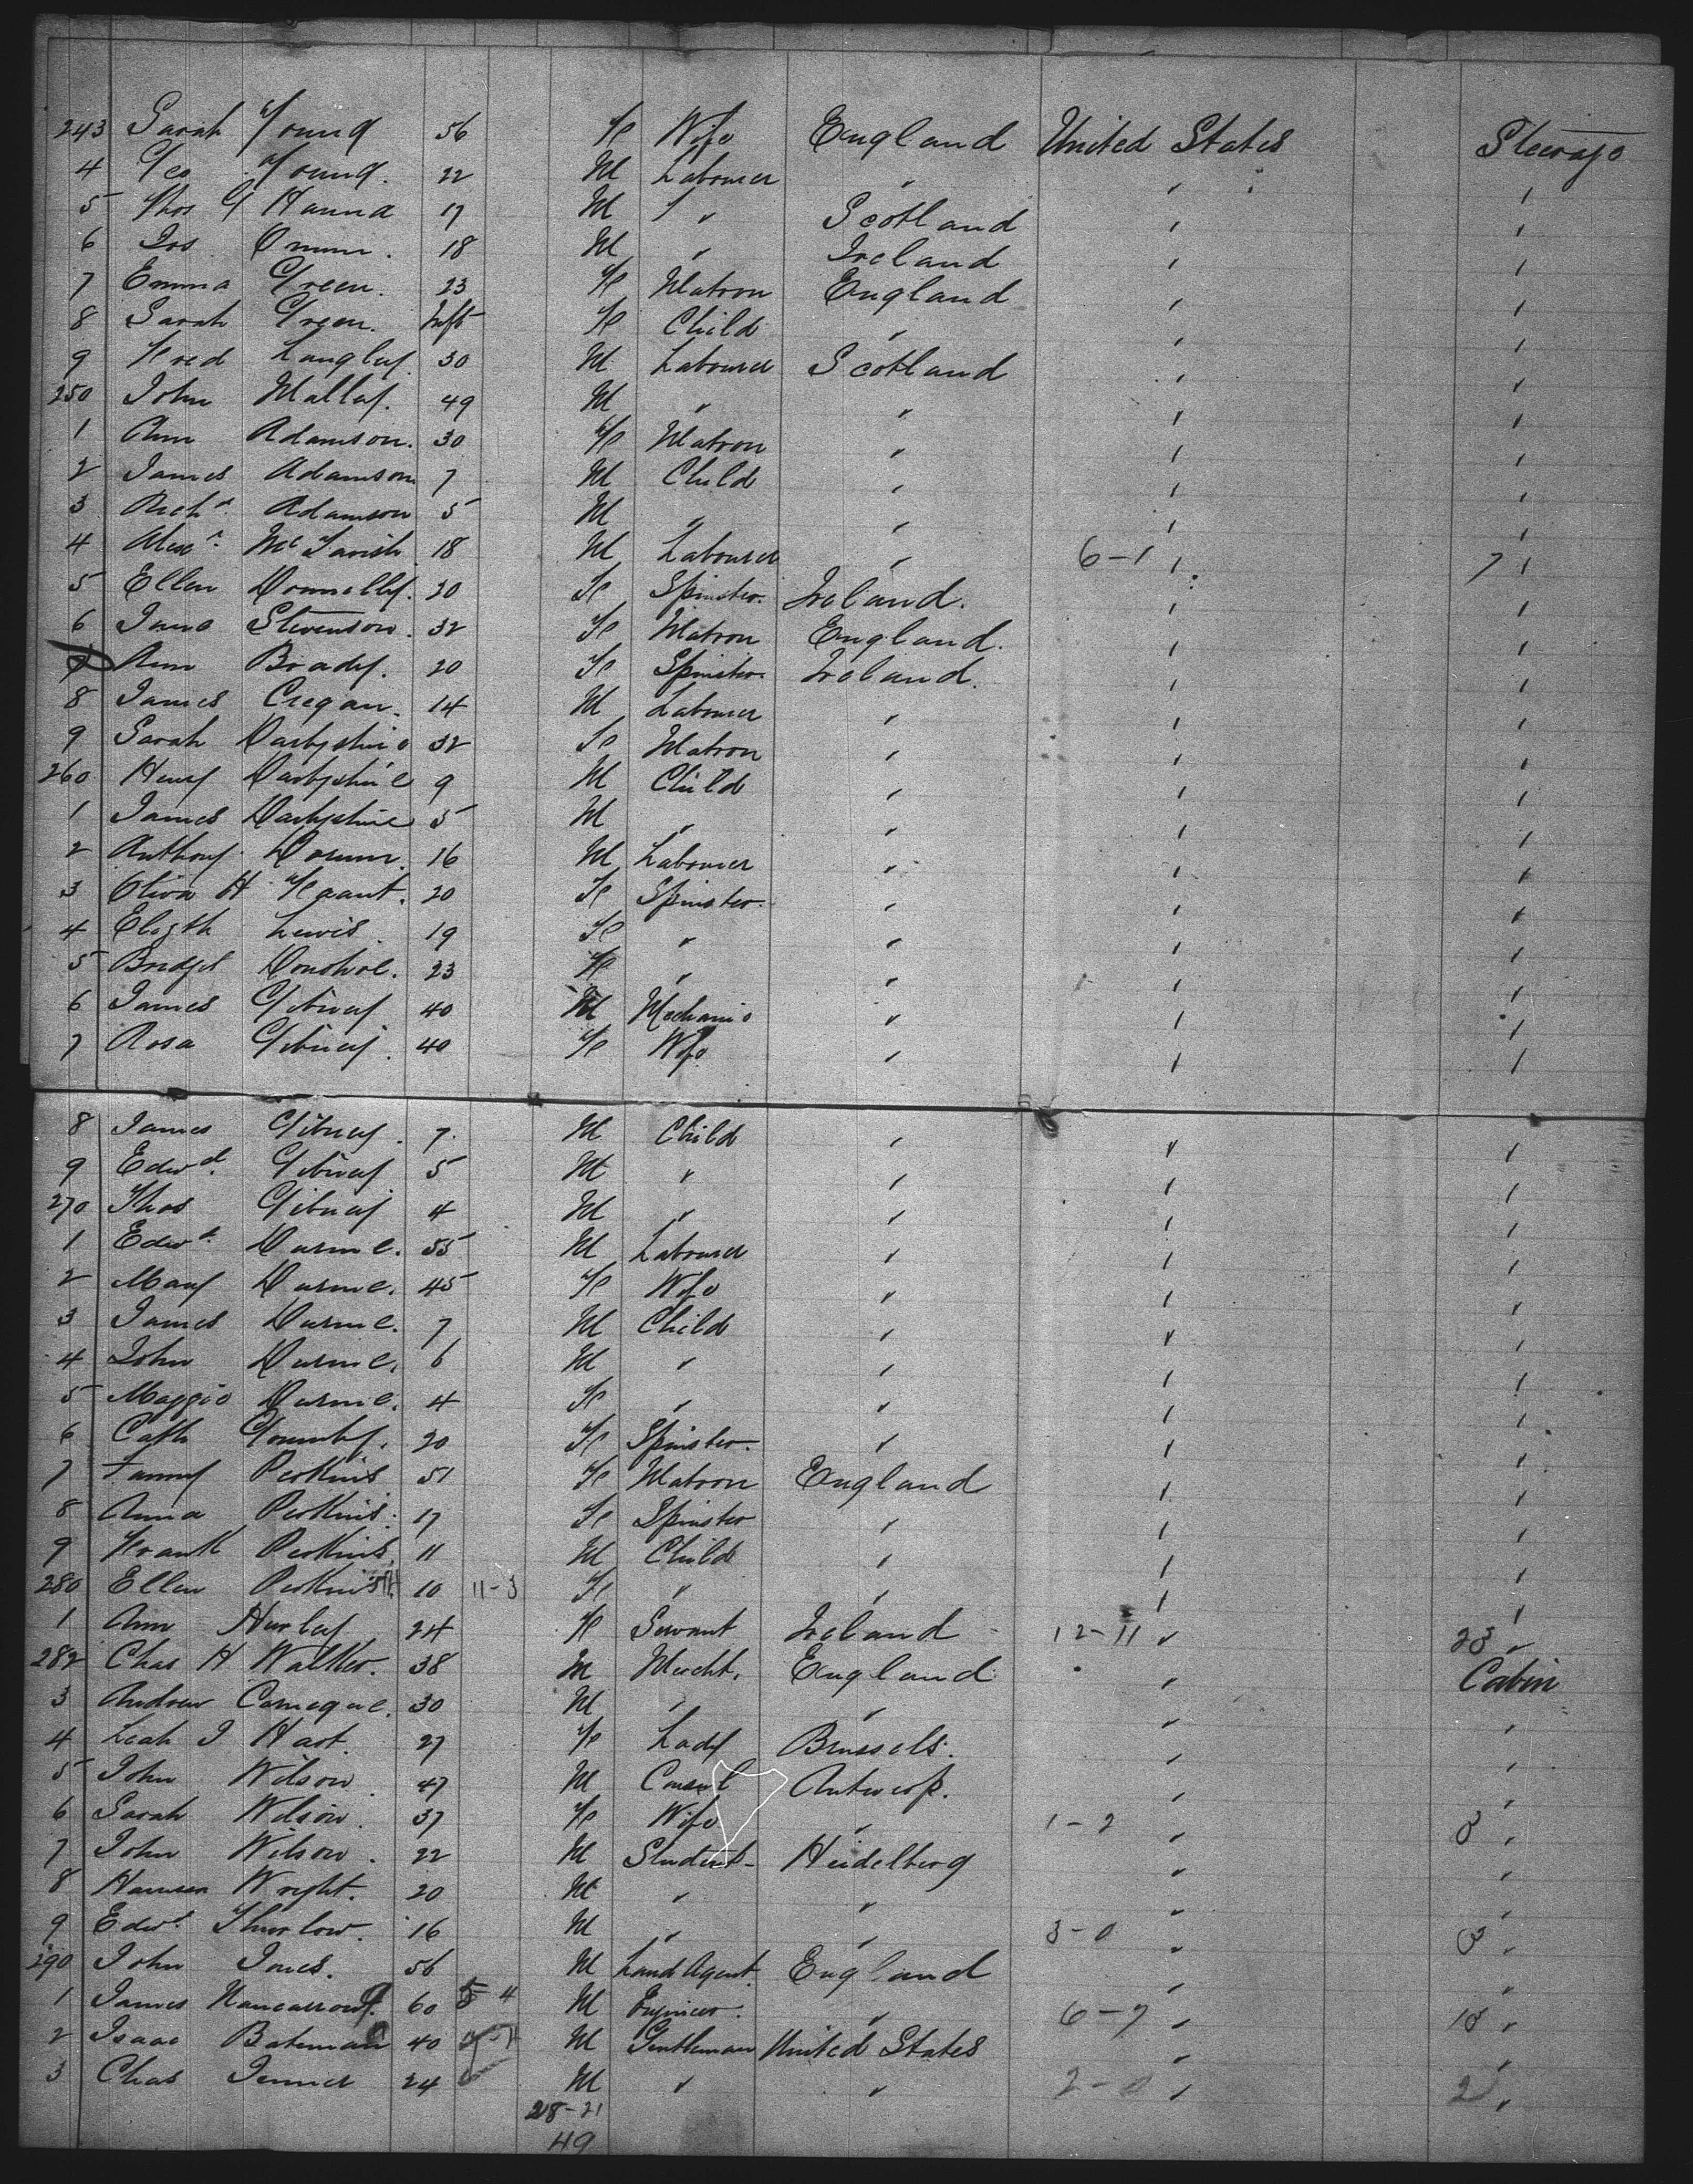 243 Sarah Young 56 F Wife England United States Steerage
4 Geo Young. 22 M Labourer " " "
5 Thos G Hanna 17 M " Scotland " "
6 Jos 18 M " Ireland " "
7 Emma Green. 23 F Matron England " "
8 Sarah Green. Inft F Child " " "
9 Fred Langley. 30 M Labourer Scotland " "
250 John Mallay. 49 M " " " "
1 Ann Adamson. 30 F Matron " " "
2 James Adamson 7 M Child " " "
3 Richd. Adamson 5 M " " " "
4 Alexr. McTavish 18 M Labourer " 6-1 " 7 "
5 Ellen Donnelly. 20 F Spinster. Ireland. " "
6 Jane Stevenson. 32 F Matron England. " "
7 Ann Brady. 20 F Spinster. Ireland. " "
8 James Cregan. 14 M Labourer " " "
9 Sarah Darbyshire 32 F Matron " " "
260 Henry Darbyshire 9 M Child " " "
1 James Darbyshire 5 M " " " "
2 Anthony 16 M Labourer " " "
3 H 20 F Spinster. " " "
4 Elizth Lewis. 19 F " " " "
5 Bridget Donohoe. 23 F " " " "
6 James Gibney 40 M Mechanic " " "
7 Rosa Gibney. 40 F Wife " " "
8 James Gibney. 7. M Child " " "
9 Edwd. Gibney 5 M " " " "
270 Thos Gibney 4 M " " " "
1 Edwd. Durnie. 55 M Labourer " " "
2 Mary Durnie. 45 F Wife " " "
3 James Durnie. 7 M Child " " "
4 John Durnie. 6 M " " " "
5 Maggie Durnie. 4 F " " " "
6 Cath 20 F Spinster. " " "
7 Fanny Perkins 51 F Matron England " "
8 Anna Perkins. 17 F Spinster " " "
9 Frank Perkins. 11 M Child " " "
280 Ellen Perkins 10 11-3 F " " " "
1 Ann Hurley 24 F Servant Ireland 12-11 " 23 "
282 Chas H Walker. 38 M Mercht. England " Cabin
3 Andrew Carnegie. 30 M " " " "
4 Leah J Hart. 27 F Lady Brussels. " "
5 John Wilson. 47 M Consul Antwerp. " "
6 Sarah Wilson. 37 F Wife " 1-2 " 3 "
7 John Wilson. 22 M Student Heidelberg " "
8 Wright. 20 M " " " "
9 Edwd. Thurlow. 16 M " " 3-0 " 3 "
290 John Jones. 56 M Land Agent. England " "
1 James Nancarrow. 60 5 4 M Engineer. " 6-7 " 13 "
2 Isaac Bateman 40 M Gentleman United States " "
3 Chas Jenner 24 M " " 2-0 " 2 "
28-21
49